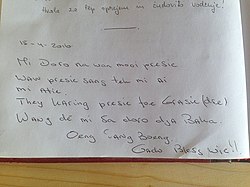 hvala za lep sprejem in čudovito vodenje!
15-4-2010
Mi Doro na wan mooi presie
Waw presie sang teh mi ai
mi Atie.
They Karing presie foe Grasie (die)
Wang de mi sa doro dja Baka.
Oeng Tang Boeng
Gado Bless Wie!!